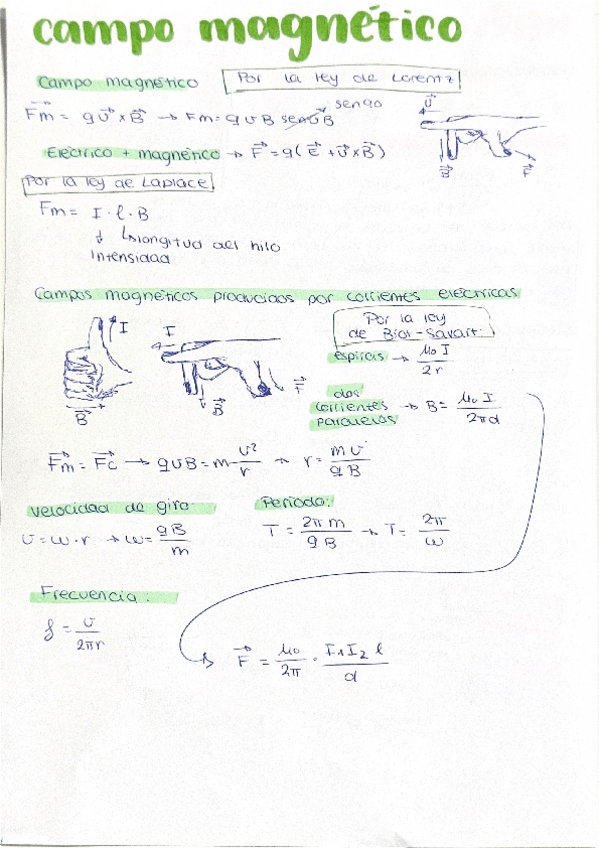 campo magnético
Campo magnético Por la ley de Lorentz
F⃗m = q v⃗ x B⃗ → Fm = q v B sen v B sen 90
Eléctrico + magnético → F⃗ = q(E⃗ + v⃗ x B⃗)
v⃗
B⃗ F⃗
Por la ley de Laplace
Fm = I · l · B
↓ ↳ longitud del hilo
Intensidad
Campos magnéticos producidos por corrientes eléctricas
I
B⃗
I
B⃗ F⃗
Por la ley
de Biot-Savart:
espiras → μ₀ I / 2r
dos
corrientes → B = μ₀ I / 2πd
paralelos
F⃗m = F⃗c → qvB = m v²/r → r = m v / q B
velocidad de giro Período:
v = ω · r → ω = qB / m T = 2π m / q B → T = 2π / ω
Frecuencia:
f = v / 2πr
F⃗ = μ₀ / 2π · I₁ I₂ l / d